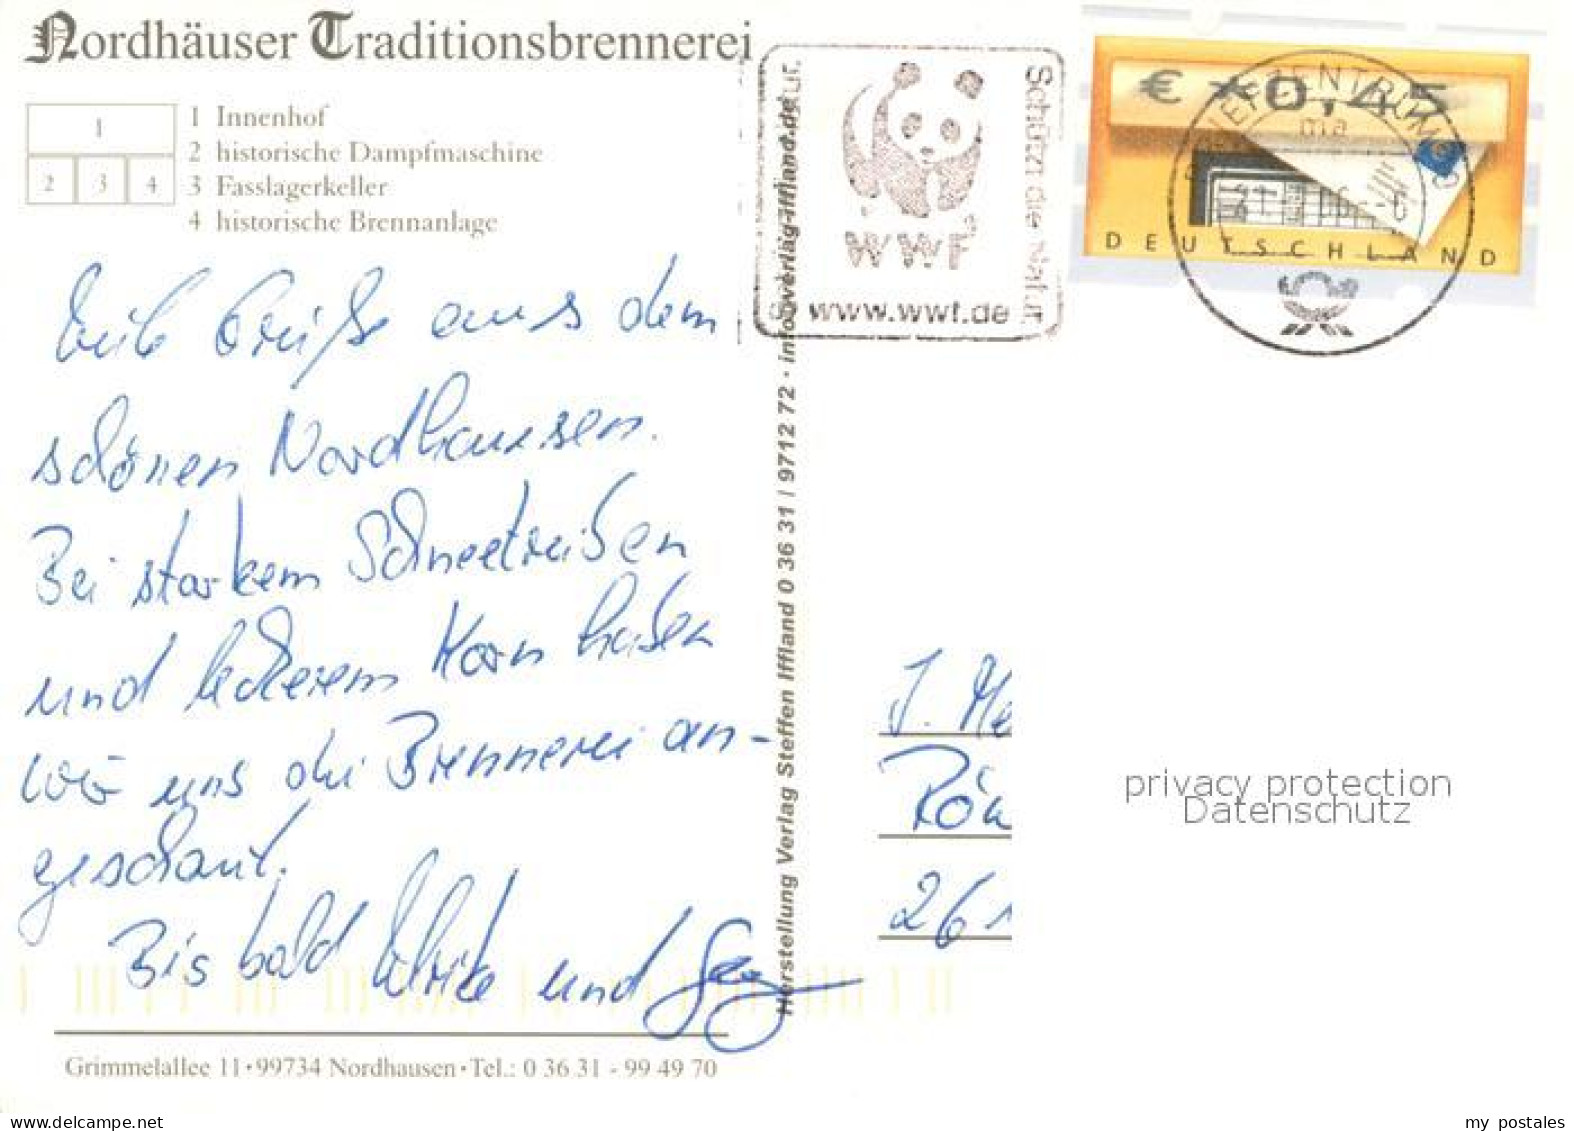 Nordhäuser Traditionsbrennerei
1
2 3 4
1 Innenhof
2 historische Dampfmaschine
3 Fasslagerkeller
4 historische Brennanlage
Viele Grüße aus dem
schönen Nordhausen.
Bei starkem Schneetreiben
und leckerem Korn haben
wir uns die Brennerei an-
geschaut.
Bis bald Ulrike und
Grimmelallee 11 · 99734 Nordhausen · Tel.: 0 36 31 - 99 49 70
Herstellung Verlag Steffen Iffland 0 36 31 / 9712 72 · info@verlag-iffland.de
WWF
www.wwf.de
Schützt die Natur.
€ *0,45
BRIEFZENTRUM
DEUTSCHLAND
J. Me
261
privacy protection
Datenschutz
www.delcampe.net
my_postales